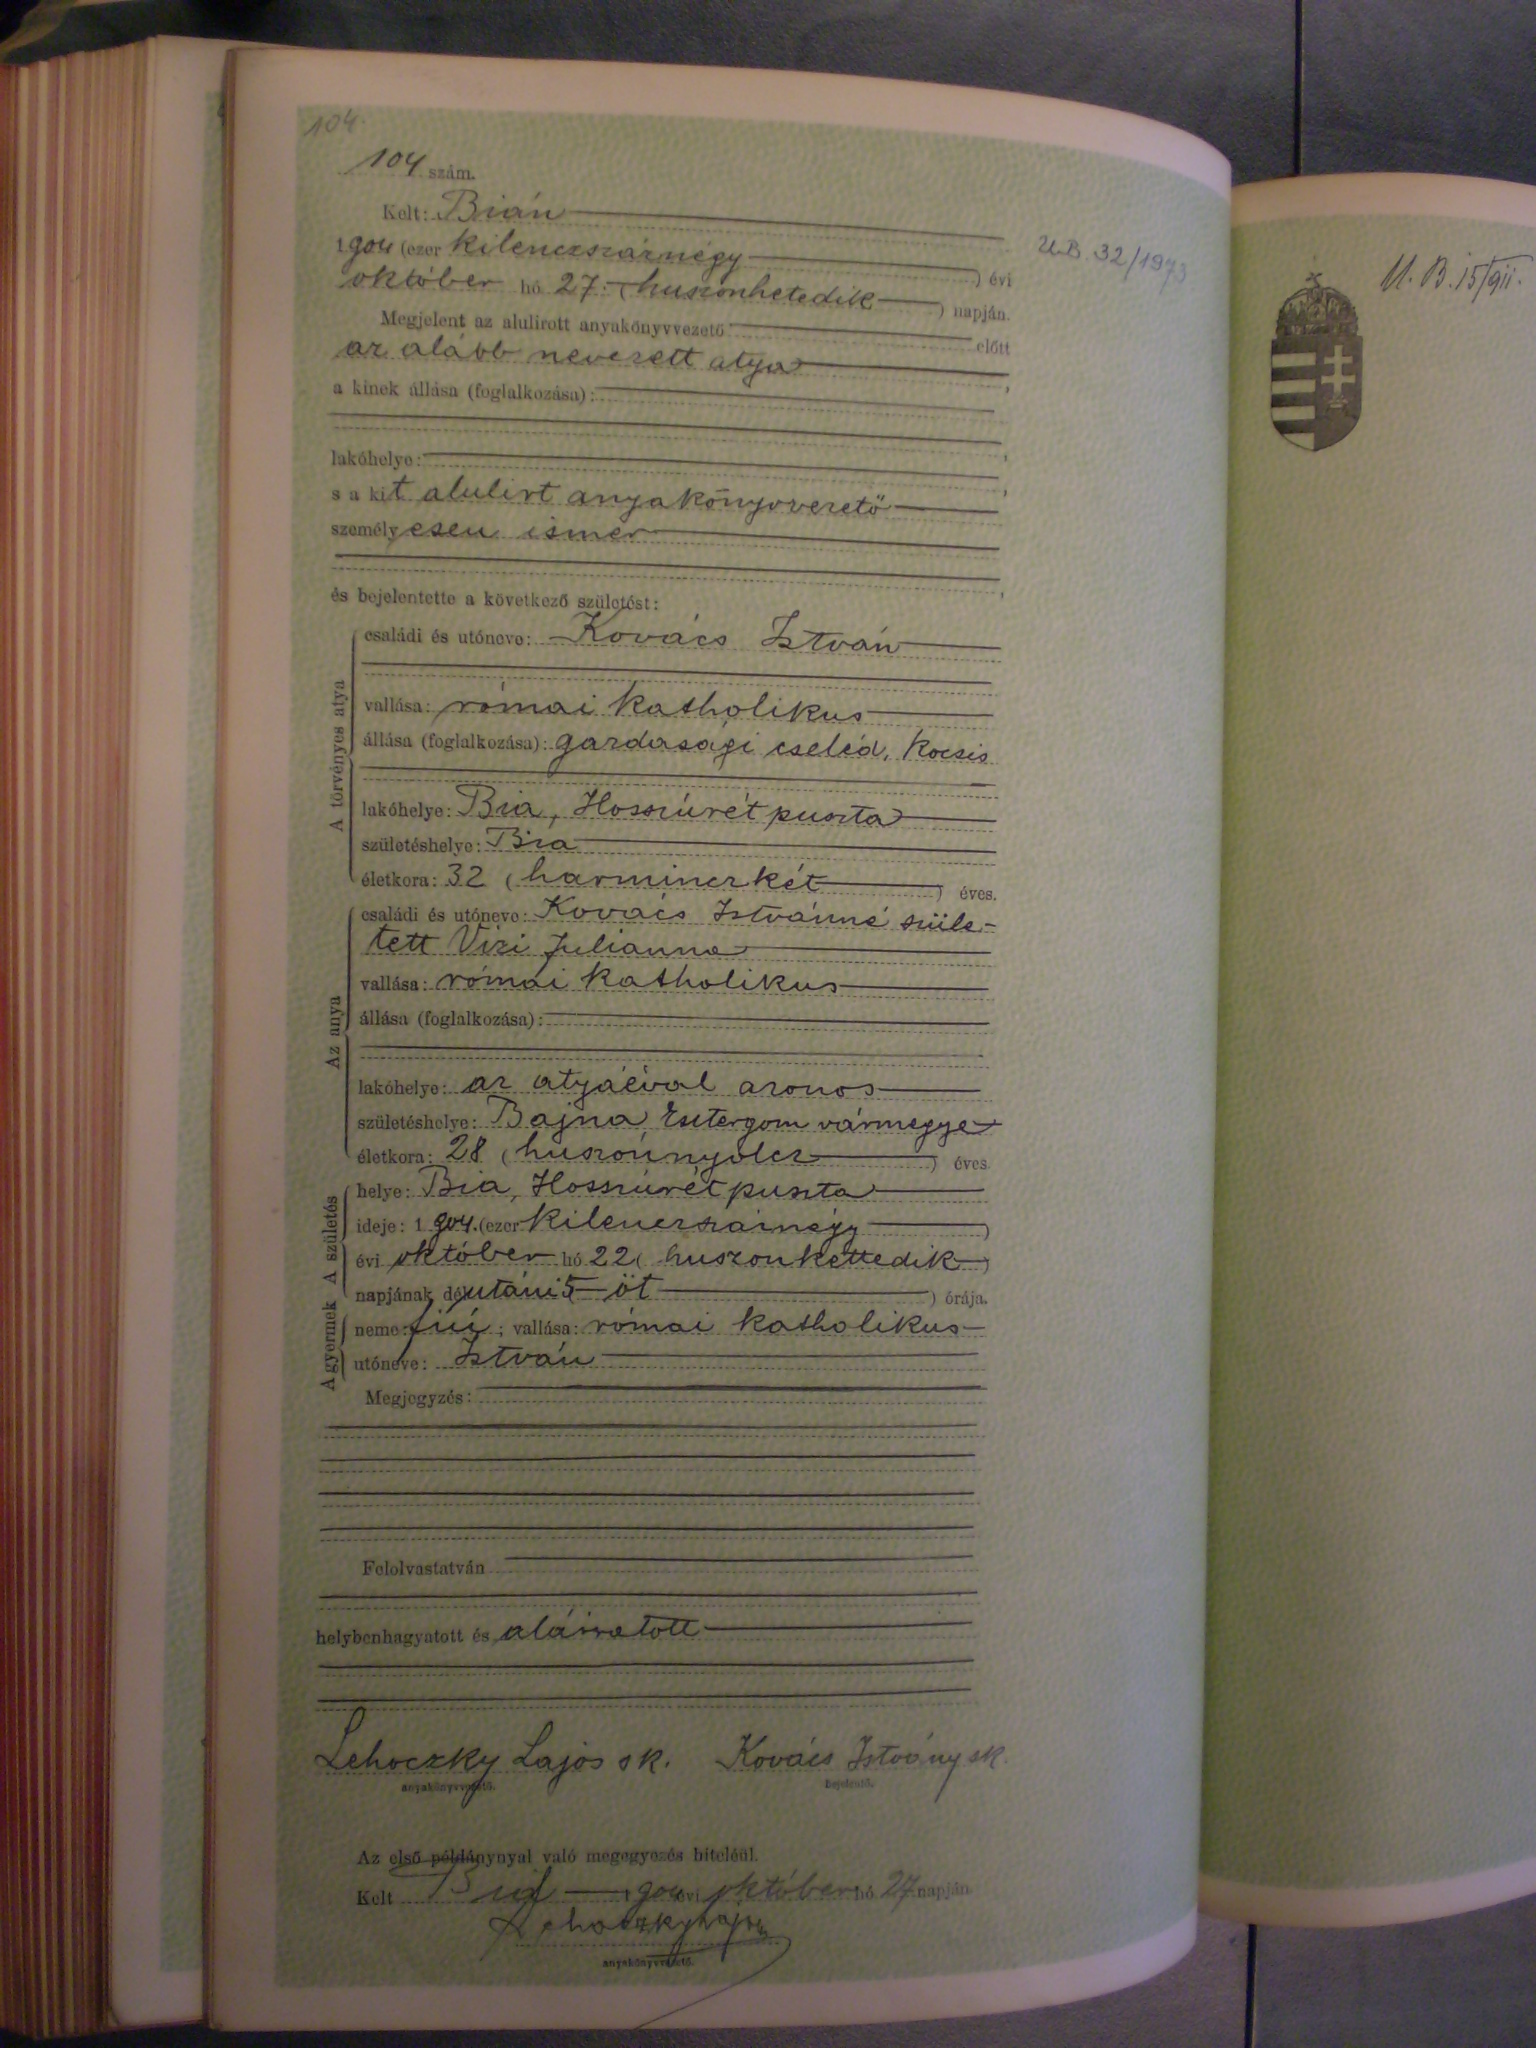 104.
104 szám.
Kelt: Bián
U.B. 32/1973
1904 (ezer kilenczszáznégy ) évi
október hó 27. (huszonhetedik ) napján.
Megjelent az alulirott anyakönyvvezető előtt
az alább nevezett atya
a kinek állása (foglalkozása):
lakóhelye:
s a kit alulirt anyakönyvvezető
személyesen ismer
és bejelentette a következő születést:
A törvényes atya
családi és utóneve: Kovács István
vallása: római katholikus
állása (foglalkozása): gazdasági cseléd, kocsis
lakóhelye: Bia, Hosszúrét puszta
születéshelye: Bia
életkora: 32 (harminczkét ) éves.
Az anya
családi és utóneve: Kovács Istvánné szüle-
tett Vizi Julianna
vallása: római katholikus
állása (foglalkozása):
lakóhelye: az atyáéval azonos
születéshelye: Bajna, Esztergom vármegye
életkora: 28 (huszonnyolcz ) éves.
A születés
helye: Bia, Hosszúrét puszta
ideje: 1904. (ezer kilenczszáznégy )
évi október hó 22 (huszonkettedik )
napjának délutáni 5 öt ) órája.
A gyermek
neme: fiú; vallása: római katholikus
utóneve: István
Megjegyzés:
Felolvastatván
helybenhagyatott és aláiratott
Lehoczky Lajos sk. Kovács Istvány sk.
anyakönyvvezető. bejelentő.
Az első példánynyal való megegyezés hiteléül.
Kelt Bia 1904 évi október hó 27 napján
Lehoczky Lajos
anyakönyvvezető.
U. B. 15/911.